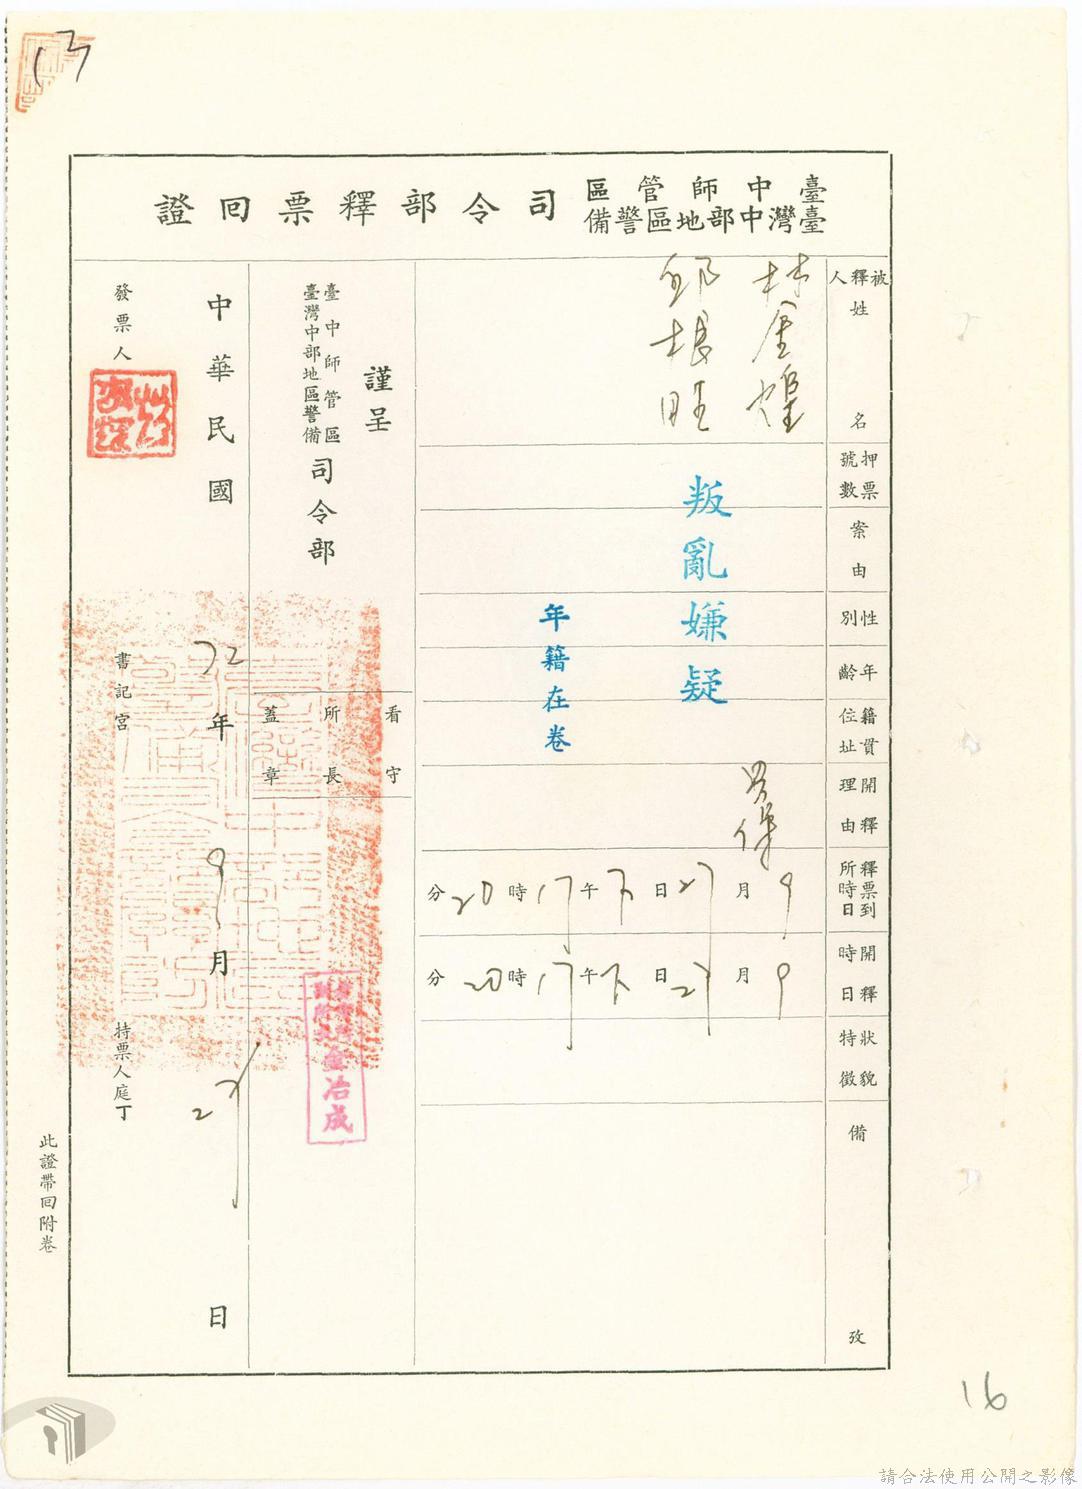 13
臺中師管區
臺灣中部地區警備
司令部釋票回證
被釋人姓名
林金煌
邱根旺
押票號數
案由
叛亂嫌疑
性別
年齡
籍貫住址
年籍在卷
開釋理由
釋票到所時日
9月27日下午17時20分
開釋時日
9月27日下午17時20分
狀貌特徵
備攷
謹呈
臺中師管區
臺灣中部地區警備
司令部
看守所長蓋章
金冶成
中華民國72年9月27日
發票人
書記官
持票人庭丁
此證帶回附卷
16
請合法使用公開之影像